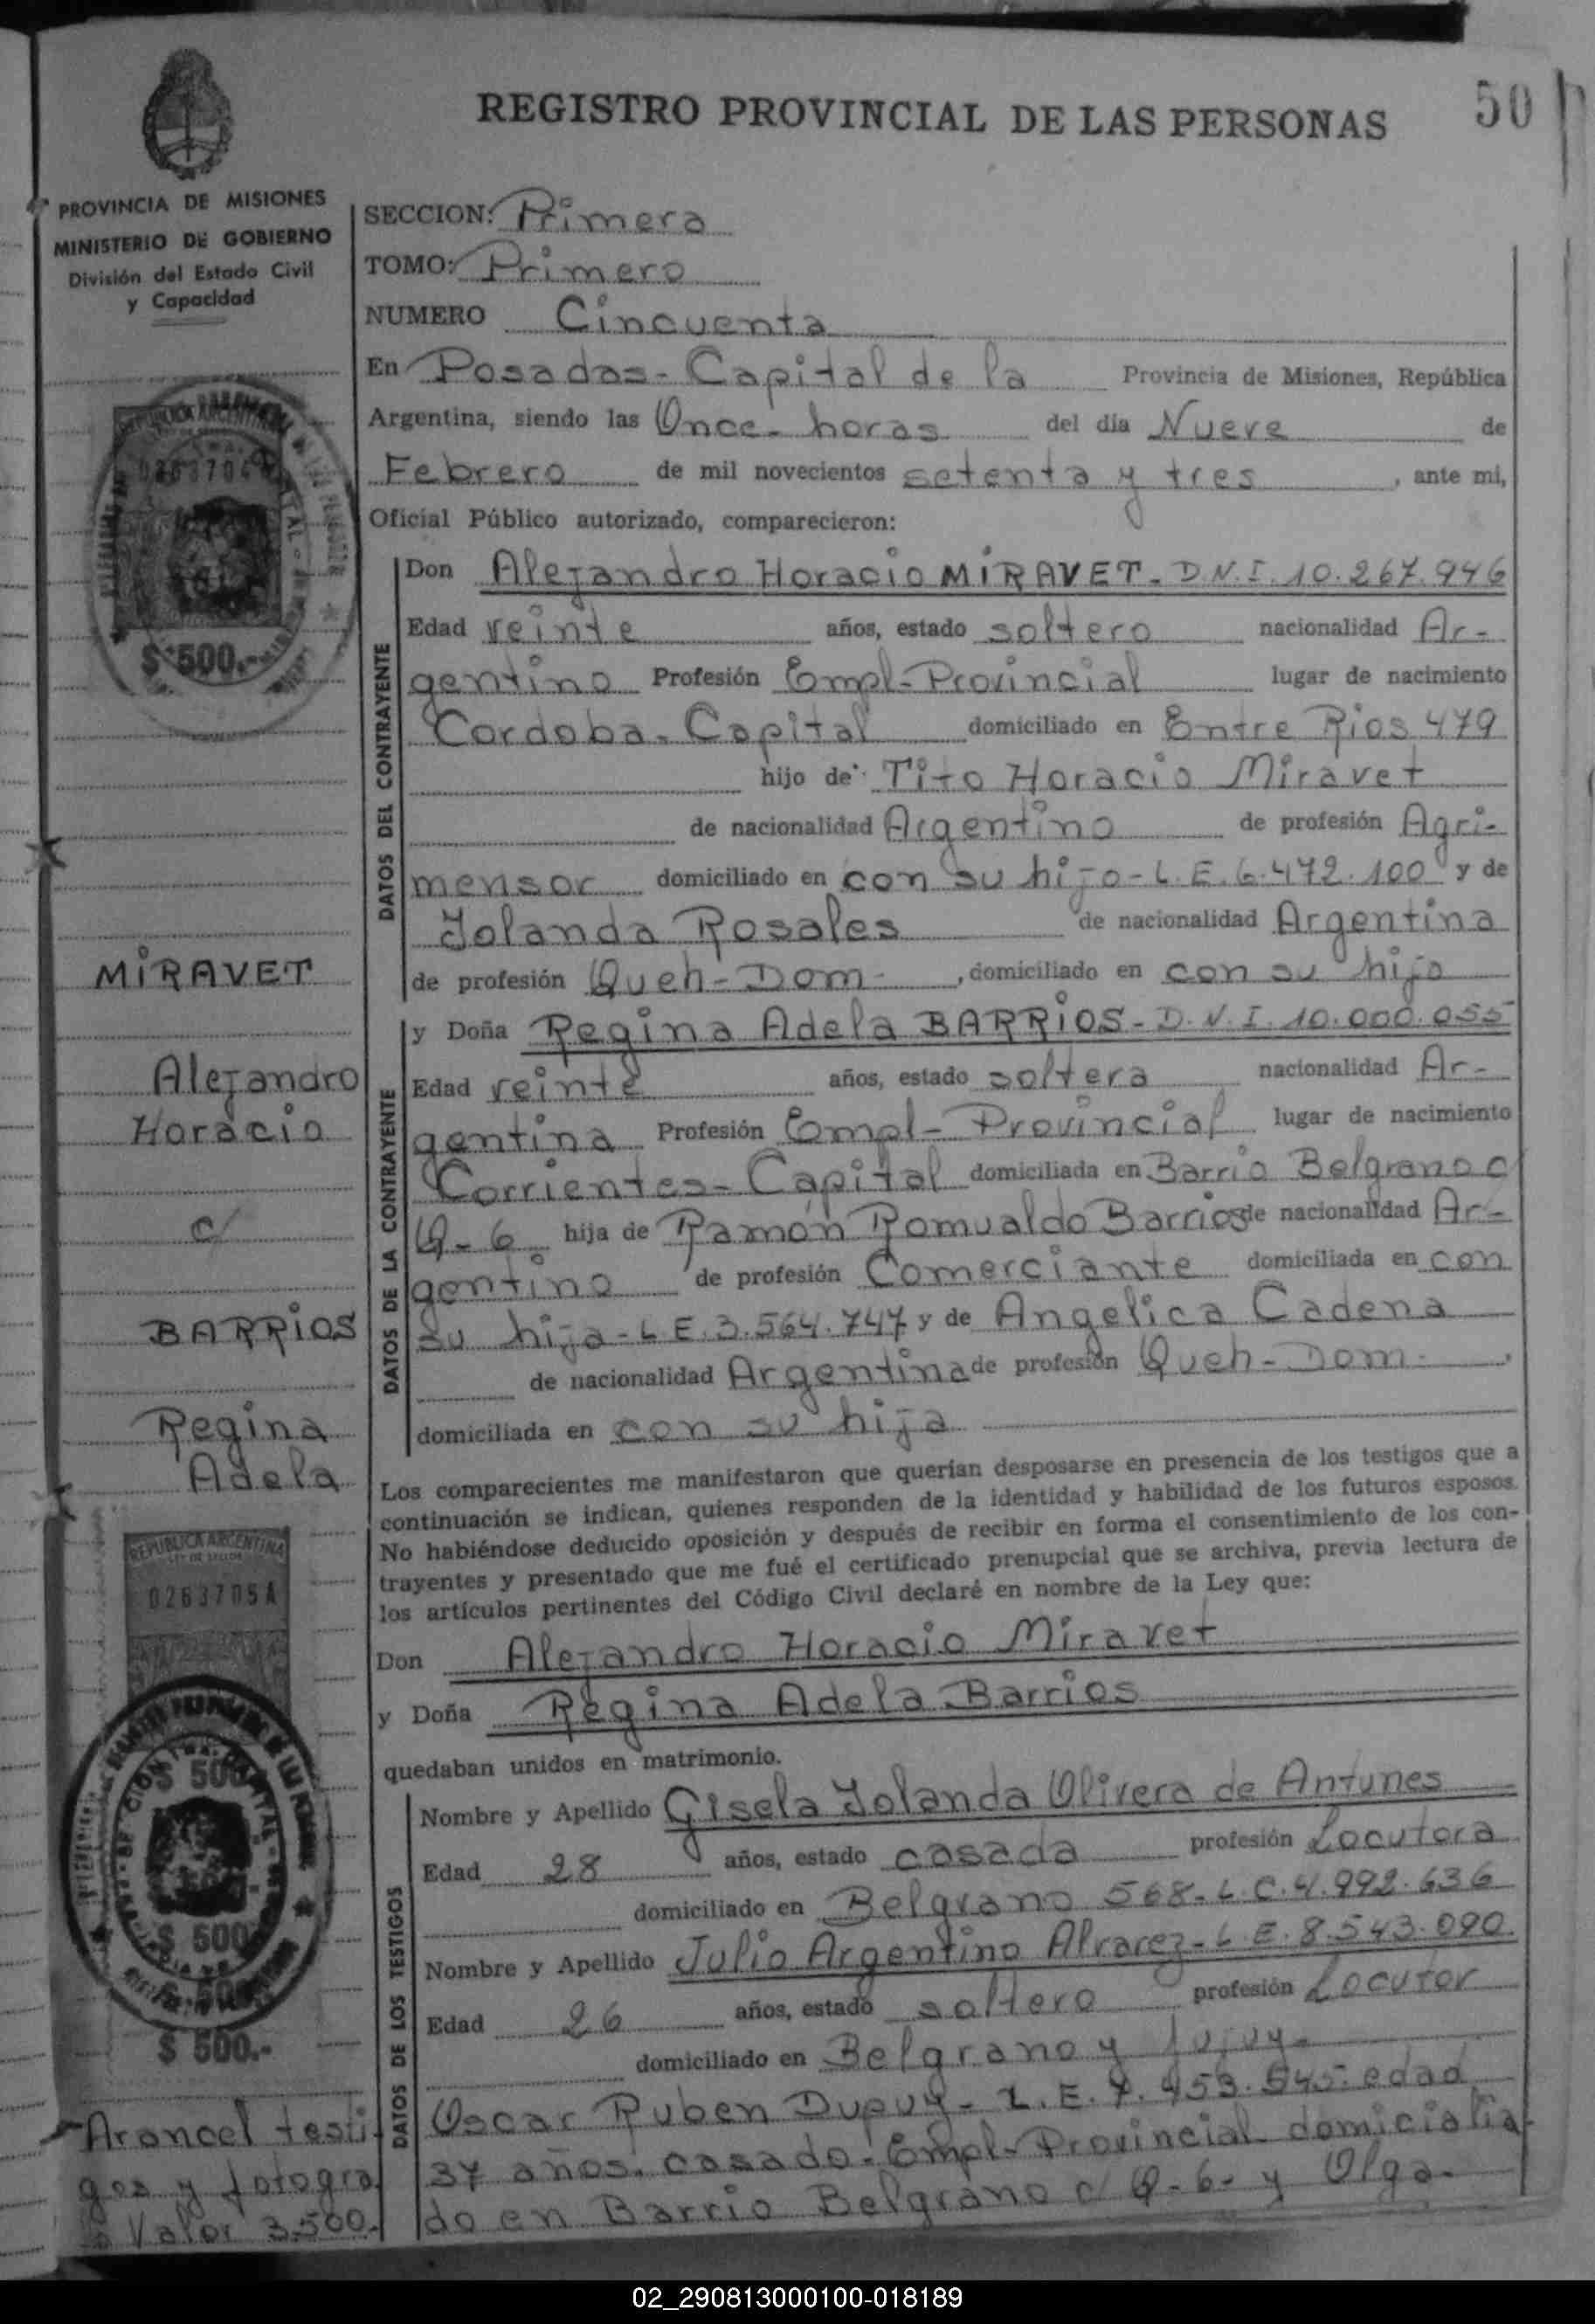 REGISTRO PROVINCIAL DE LAS PERSONAS
50
PROVINCIA DE MISIONES
MINISTERIO DE GOBIERNO
División del Estado Civil
y Capacidad
SECCION: Primera
TOMO: Primero
NUMERO Cincuenta
En Posadas- Capital de la Provincia de Misiones, República
Argentina, siendo las Once- horas del día Nueve de
Febrero de mil novecientos setenta y tres, ante mi,
Oficial Público autorizado, comparecieron:
DATOS DEL CONTRAYENTE
Don Alejandro Horacio MIRAVET- D.N.I. 10.267.946
Edad veinte años, estado soltero nacionalidad Ar-
gentino Profesión Empl- Provincial lugar de nacimiento
Cordoba- Capital domiciliado en Entre Rios 479
hijo de Tito Horacio Miravet
de nacionalidad Argentino de profesión Agri-
mensor domiciliado en con su hijo- L.E. 6.472.100 y de
Jolanda Rosales de nacionalidad Argentina
de profesión Queh- Dom- , domiciliado en con su hijo
DATOS DE LA CONTRAYENTE
y Doña Regina Adela BARRIOS- D.N.I. 10.000.055
Edad veinte años, estado soltera nacionalidad Ar-
gentina Profesión Empl- Provincial lugar de nacimiento
Corrientes- Capital domiciliada en Barrio Belgrano c/
Q-6 hija de Ramón Romualdo Barrios de nacionalidad Ar-
gentino de profesión Comerciante domiciliada en con
su hija- L.E. 3.564.747 y de Angelica Cadena
de nacionalidad Argentina de profesión Queh- Dom- ,
domiciliada en con su hija
Los comparecientes me manifestaron que querían desposarse en presencia de los testigos que a
continuación se indican, quienes responden de la identidad y habilidad de los futuros esposos.
No habiéndose deducido oposición y después de recibir en forma el consentimiento de los con-
trayentes y presentado que me fué el certificado prenupcial que se archiva, previa lectura de
los artículos pertinentes del Código Civil declaré en nombre de la Ley que:
Don Alejandro Horacio Miravet
y Doña Regina Adela Barrios
quedaban unidos en matrimonio.
DATOS DE LOS TESTIGOS
Nombre y Apellido Gisela Jolanda Olivera de Antunes
Edad 28 años, estado casada profesión Locutora
domiciliado en Belgrano 568- L.C. 4.992.636
Nombre y Apellido Julio Argentino Alvarez- L.E. 8.543.090.
Edad 26 años, estado soltero profesión Locutor
domiciliado en Belgrano y Jujuy-
Oscar Ruben Dupuy- L.E. 7.453.545- edad
37 años. casado- Empl- Provincial- domicialia-
do en Barrio Belgrano c/ Q-6- y Olga-
MIRAVET
Alejandro
Horacio
c/
BARRIOS
Regina
Adela
REPUBLICA ARGENTINA
$ 500.-
REPUBLICA ARGENTINA
LEY DE SELLOS
0263705A
$ 500
$ 500
$ 500.-
Arancel testi-
gos y fotogra
Valor 3.500.-
02_290813000100-018189